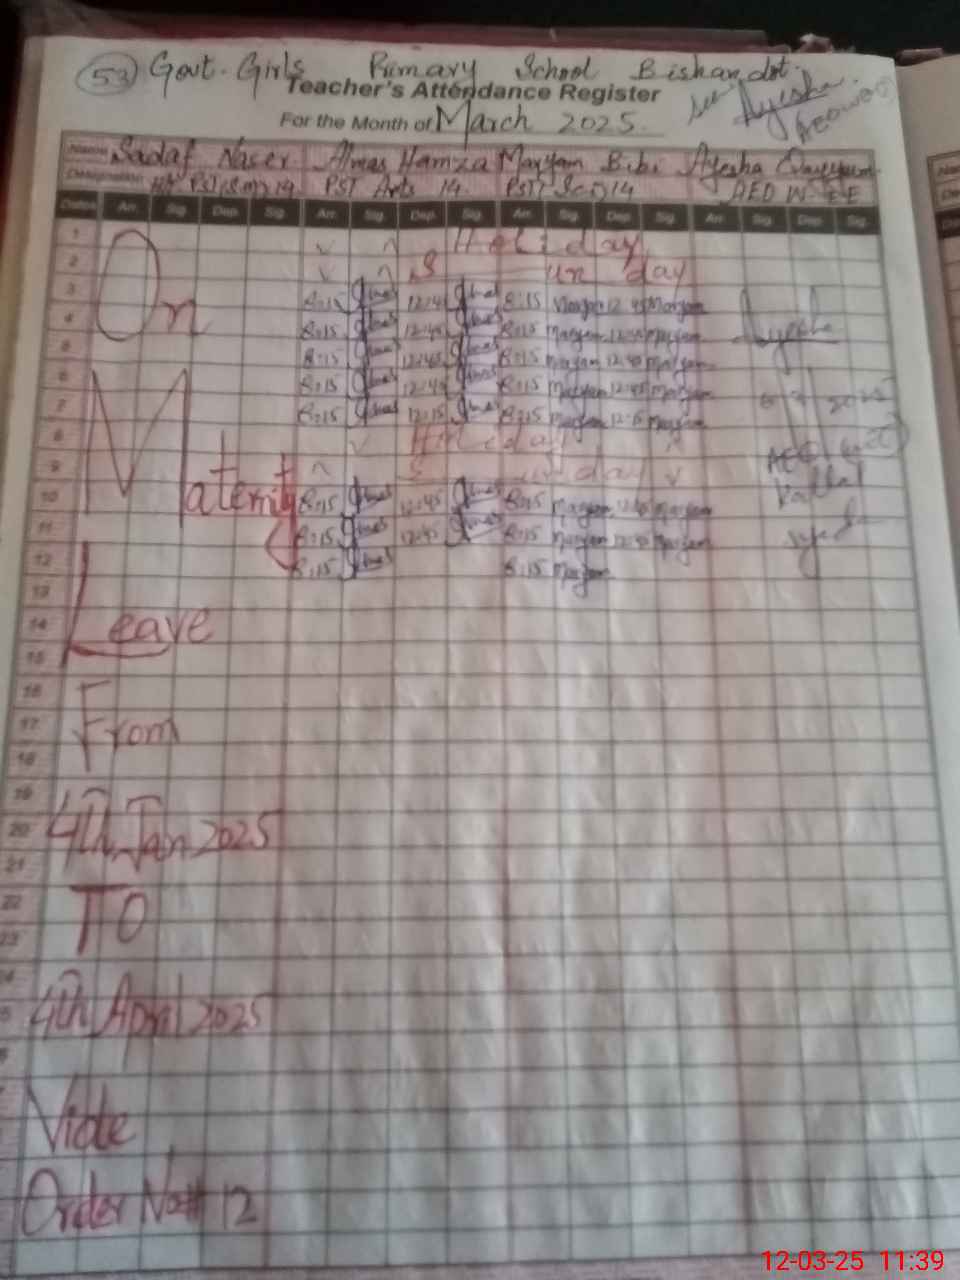 53 Govt. Girls Primary School Bishandot.
Teacher's Attendance Register
seen Ayesha
For the Month of March 2025.
Name Sadaf Naser Almas Hamza Maryam Bibi Ayesha
Designation PST 14 PST Arts 14 PST Sci 14 AEO W-EE
Dates Arr. Sig. Dep. Sig. Arr. Sig. Dep. Sig. Arr. Sig. Dep. Sig. Arr. Sig. Dep. Sig.
1 Holiday
2 Sunday
3 8:15 Almas 12:45 Almas 8:15 Maryam 12:45 Maryam Ayesha
4 8:15 Almas 12:45 Almas 8:15 Maryam 12:45 Maryam
5 8:15 Almas 12:45 Almas 8:15 Maryam 12:45 Maryam
6 8:15 Almas 12:45 Almas 8:15 Maryam 12:45 Maryam
7 8:15 Almas 12:15 Almas 8:15 Maryam 12:15 Maryam
8 Holiday
9 Sunday
10 8:15 Almas 12:45 Almas 8:15 Maryam 12:45 Maryam
11 8:15 Almas 12:45 Almas 8:15 Maryam 12:45 Maryam
12 8:15 Almas 8:15 Maryam
13
14
15
16
17
18
19
20
21
22
23
On
Maternity
Leave
From
4th Jan 2025
To
4th April 2025
Vide
Order No# 12
12-03-25 11:39